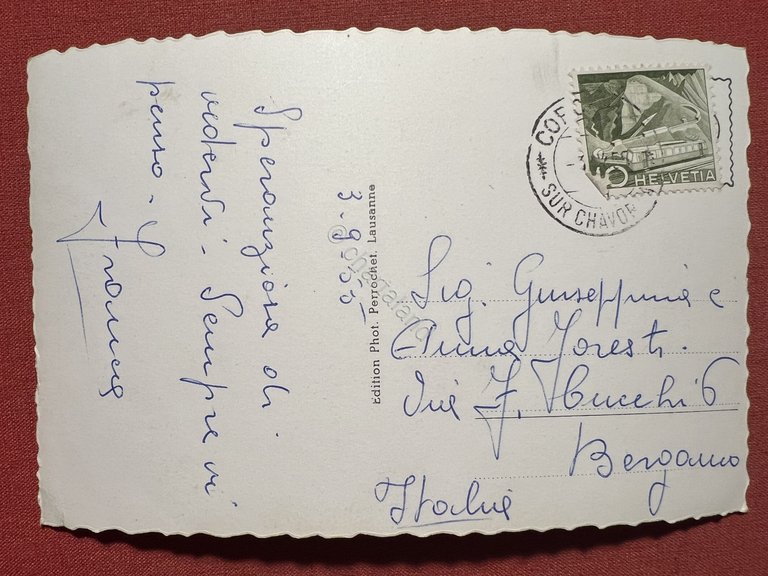 Speranzosa di
vedervi - Sempre vi
penso - Franca
3.9.55
Edition Phot. Perrochet, Lausanne
COR
SUR CHAVOR
5 HELVETIA
Sig. Giuseppina e
Anna Foresti.
Via F. Cucchi 6
Bergamo
Italia